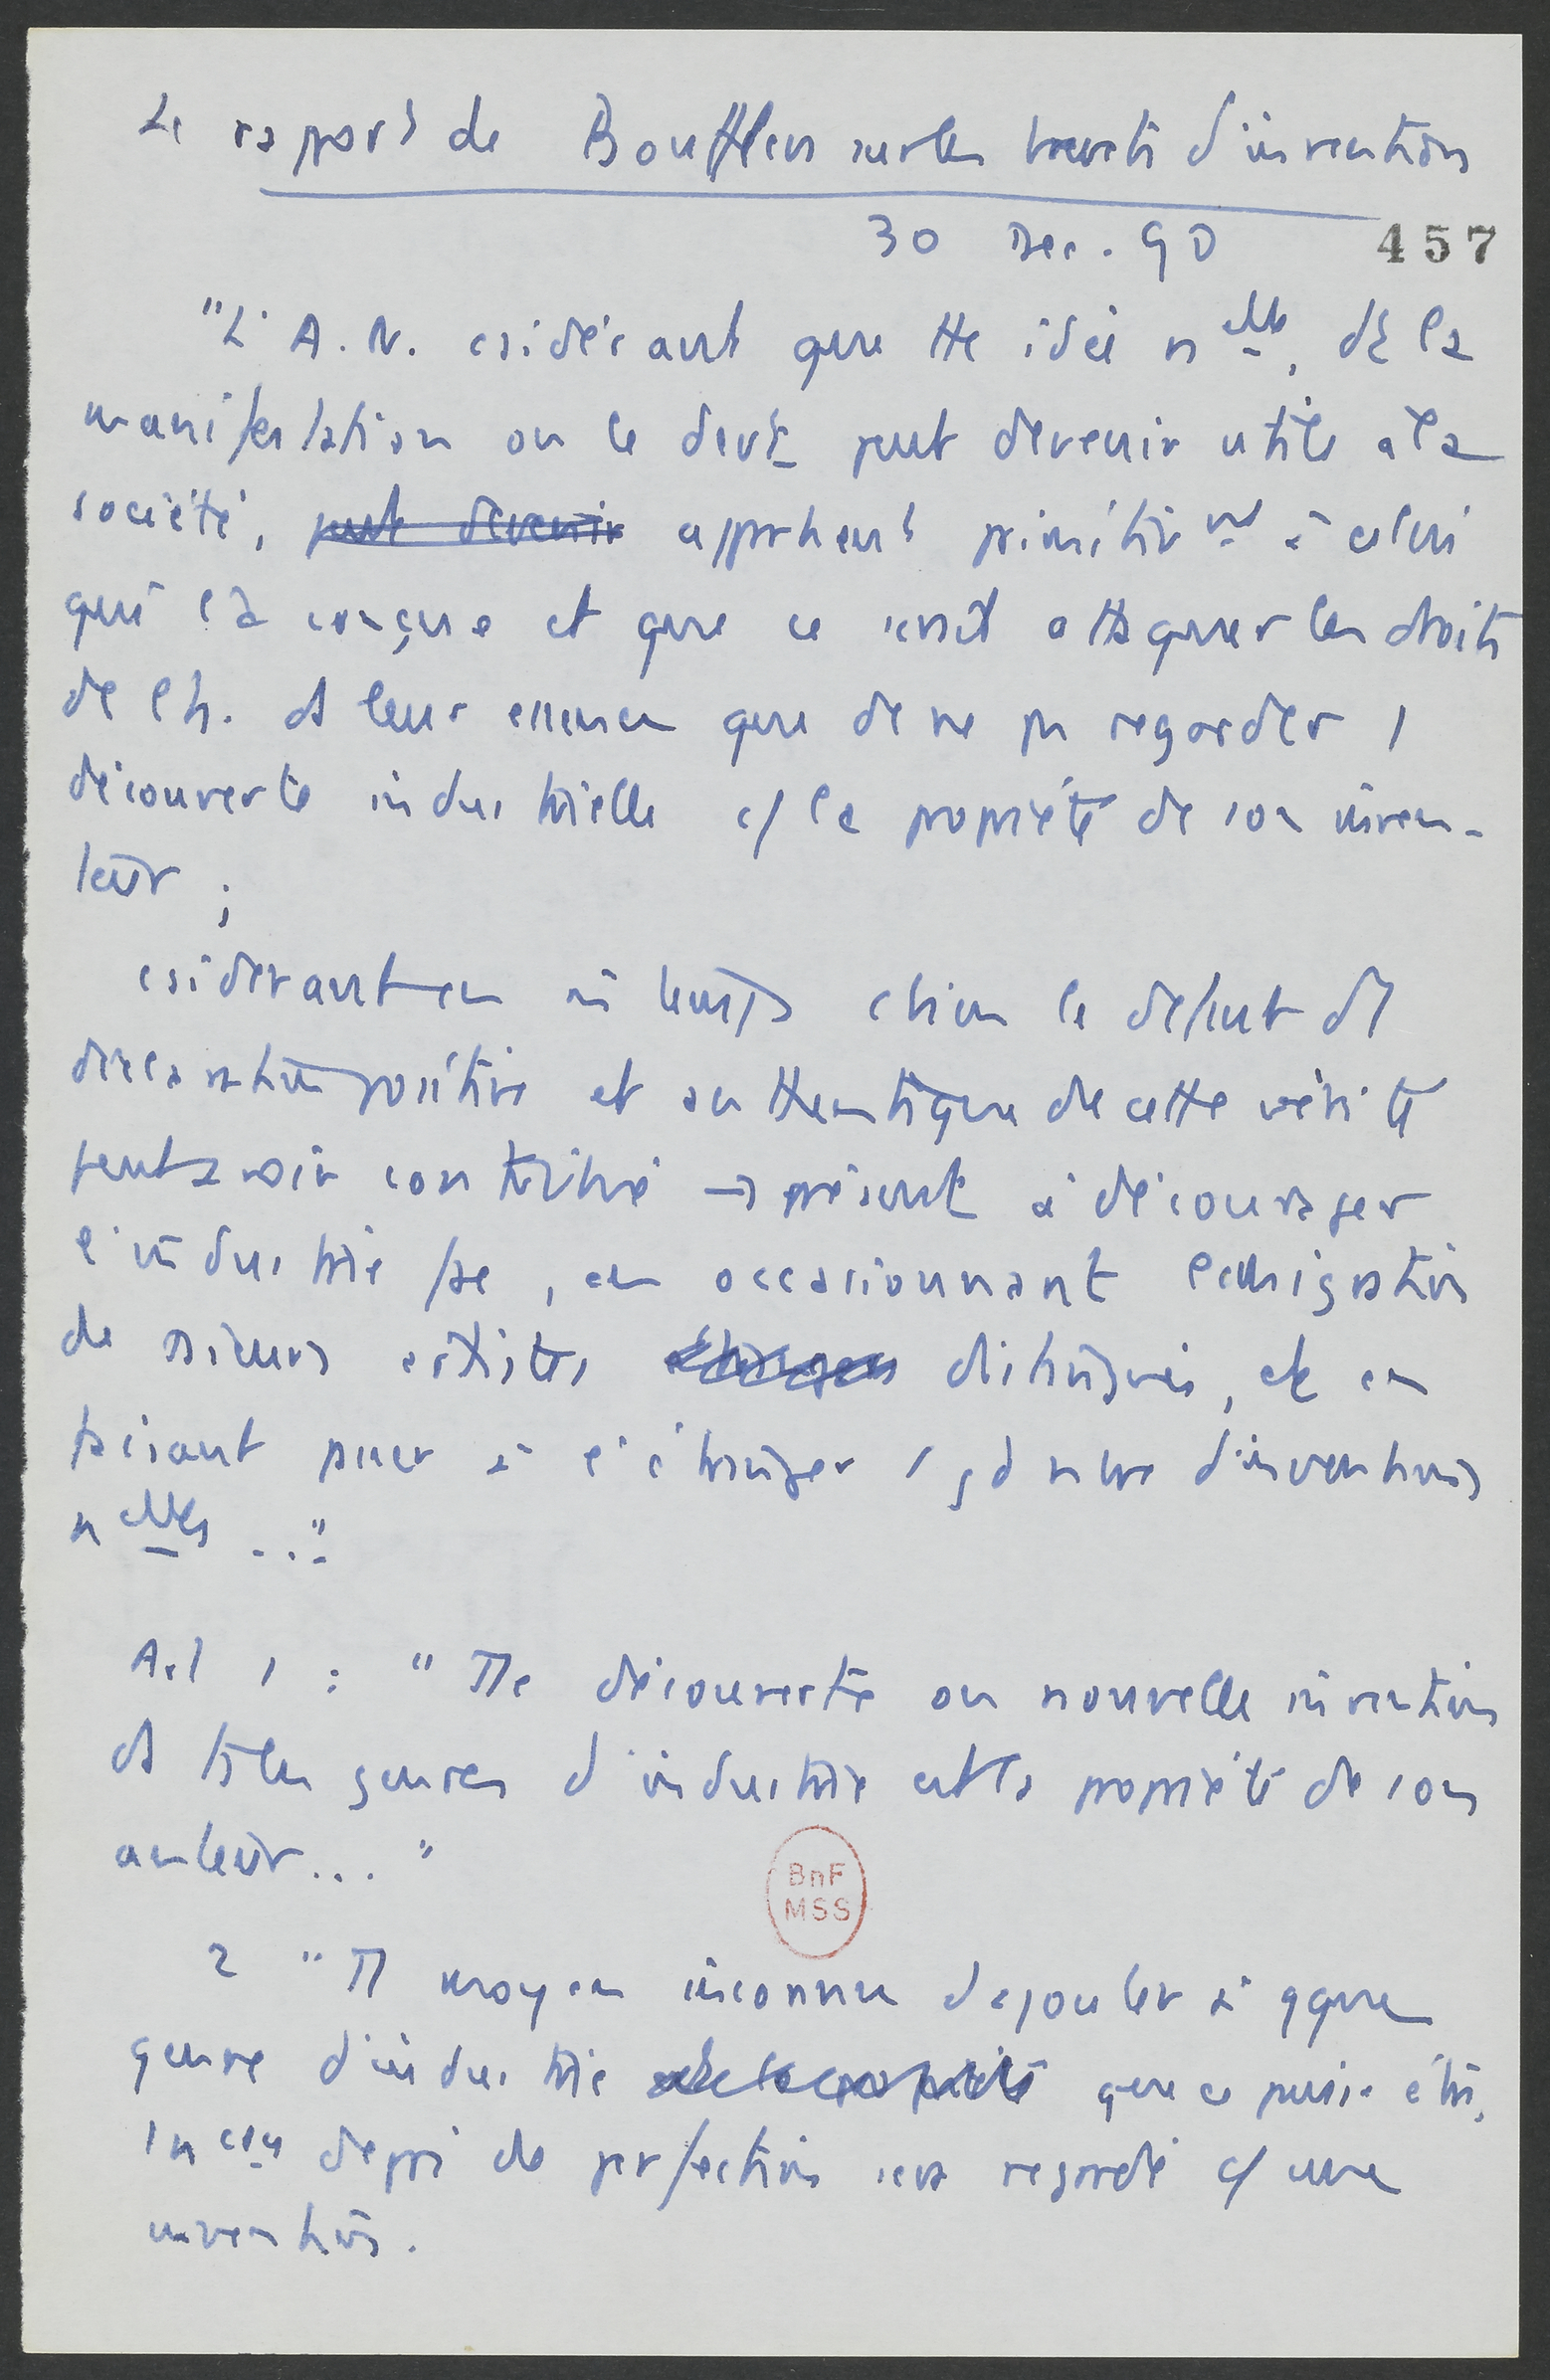 Le rapport de Boufflers sur les brevets d'invention
30 Dec. 90
457
"L'A.N. csidérant que tte idée nelle, dt la
manifestation ou le devt peut devenir utile à la
société, peut devenir appartient primitivmt à celui
qui l'a conçue et que ce serait attaquer les droits
de l'h. ds leur essence que de ne pas regarder 1
découverte industrielle c/ la propriété de son inven-
teur ;
csidérant en m temps cbien le défaut d'1
déclaration positive et authentique de cette vérité
peut avoir contribué jusqu'à présent à décourager
l'industrie fse, en occasionnant l'émigration
de plusieurs artistes distingués, et en
faisant passer à l'étranger 1 gd nbre d'inventions
nelles ..."
Art 1 : "Tte découverte ou nouvelle invention
ds ts les genres d'industrie est la propriété de son
auteur... "
BnF
MSS
2 "Tt moyen inconnu d'ajouter à qque
genre d'industrie que ce puisse être,
1 n degré de perfection sera regardé c/ une
invention.